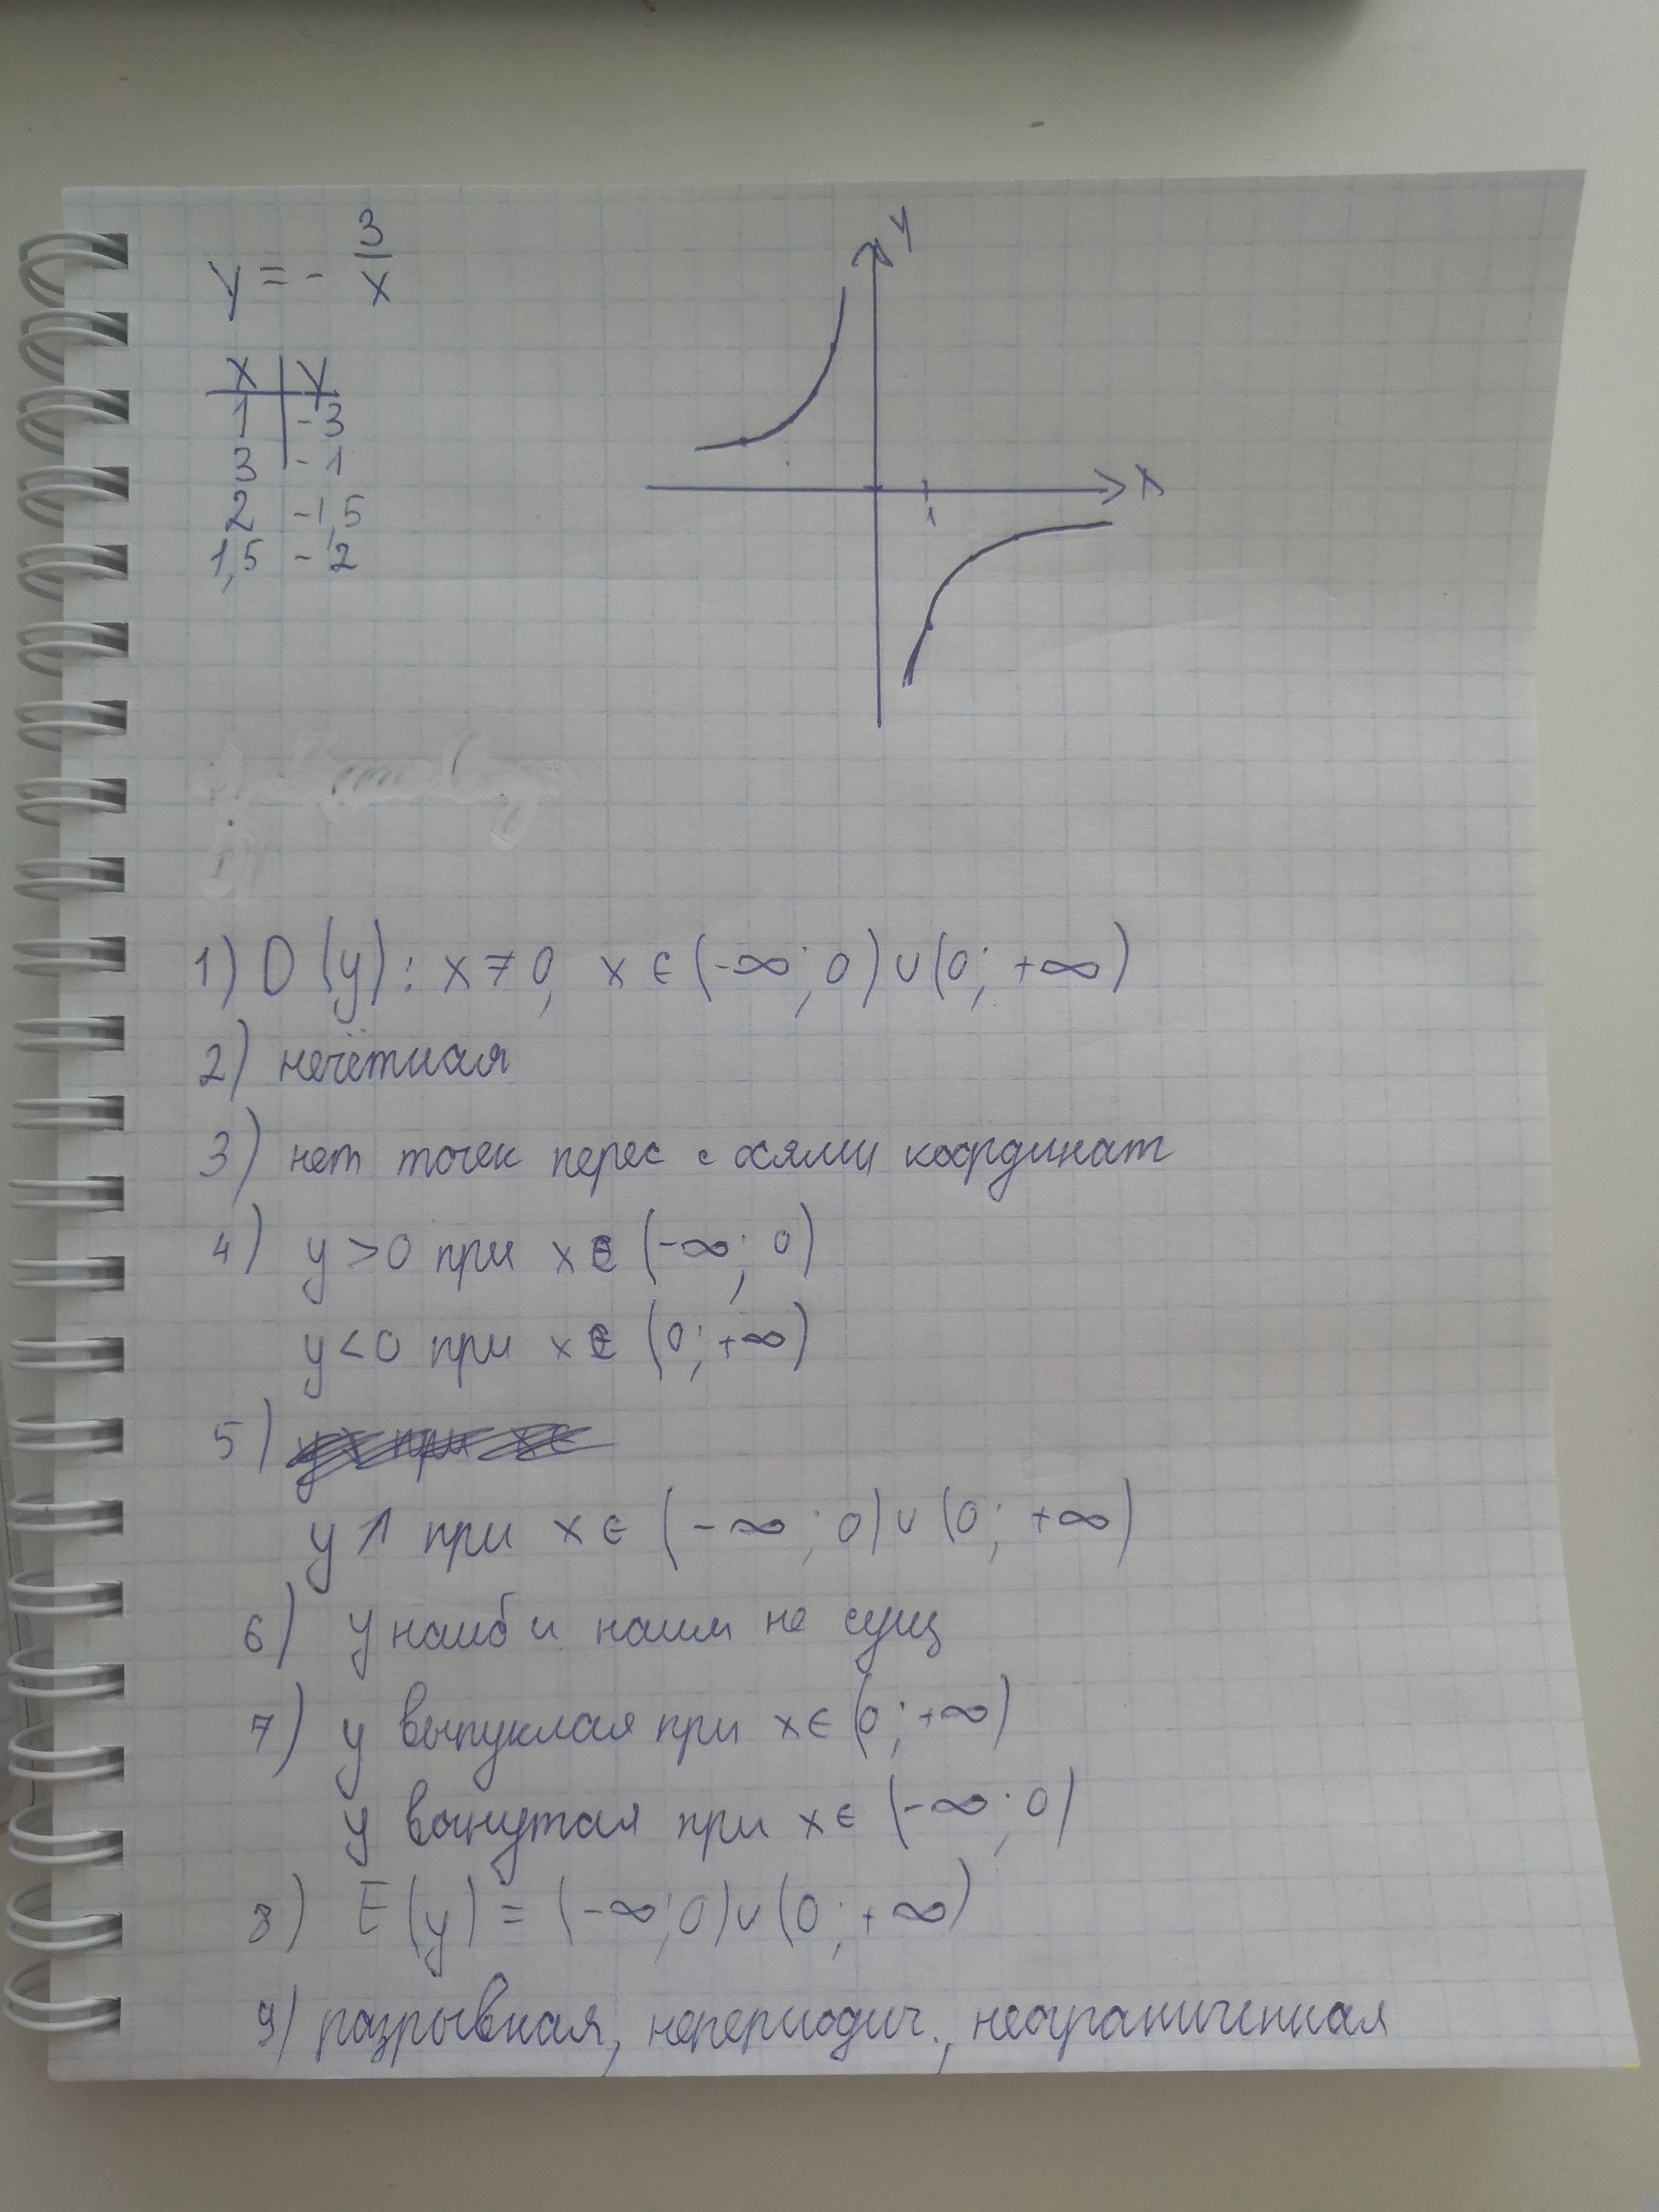 y = - 3/x
y
x | y
1 | -3
3 | -1
2 -1,5
1,5 -2
x
1
1) D(y): x ≠ 0, x ∈ (-∞; 0) ∪ (0; +∞)
2) нечётная
3) нет точек перес с осями координат
4) y > 0 при x ∈ (-∞; 0)
y < 0 при x ∈ (0; +∞)
5)
y ↑ при x ∈ (-∞; 0) ∪ (0; +∞)
6) y наиб и наим не сущ
7) y выпуклая при x ∈ (0; +∞)
y вогнутая при x ∈ (-∞; 0)
8) E(y) = (-∞; 0) ∪ (0; +∞)
9) разрывная, непериодич., неограниченная